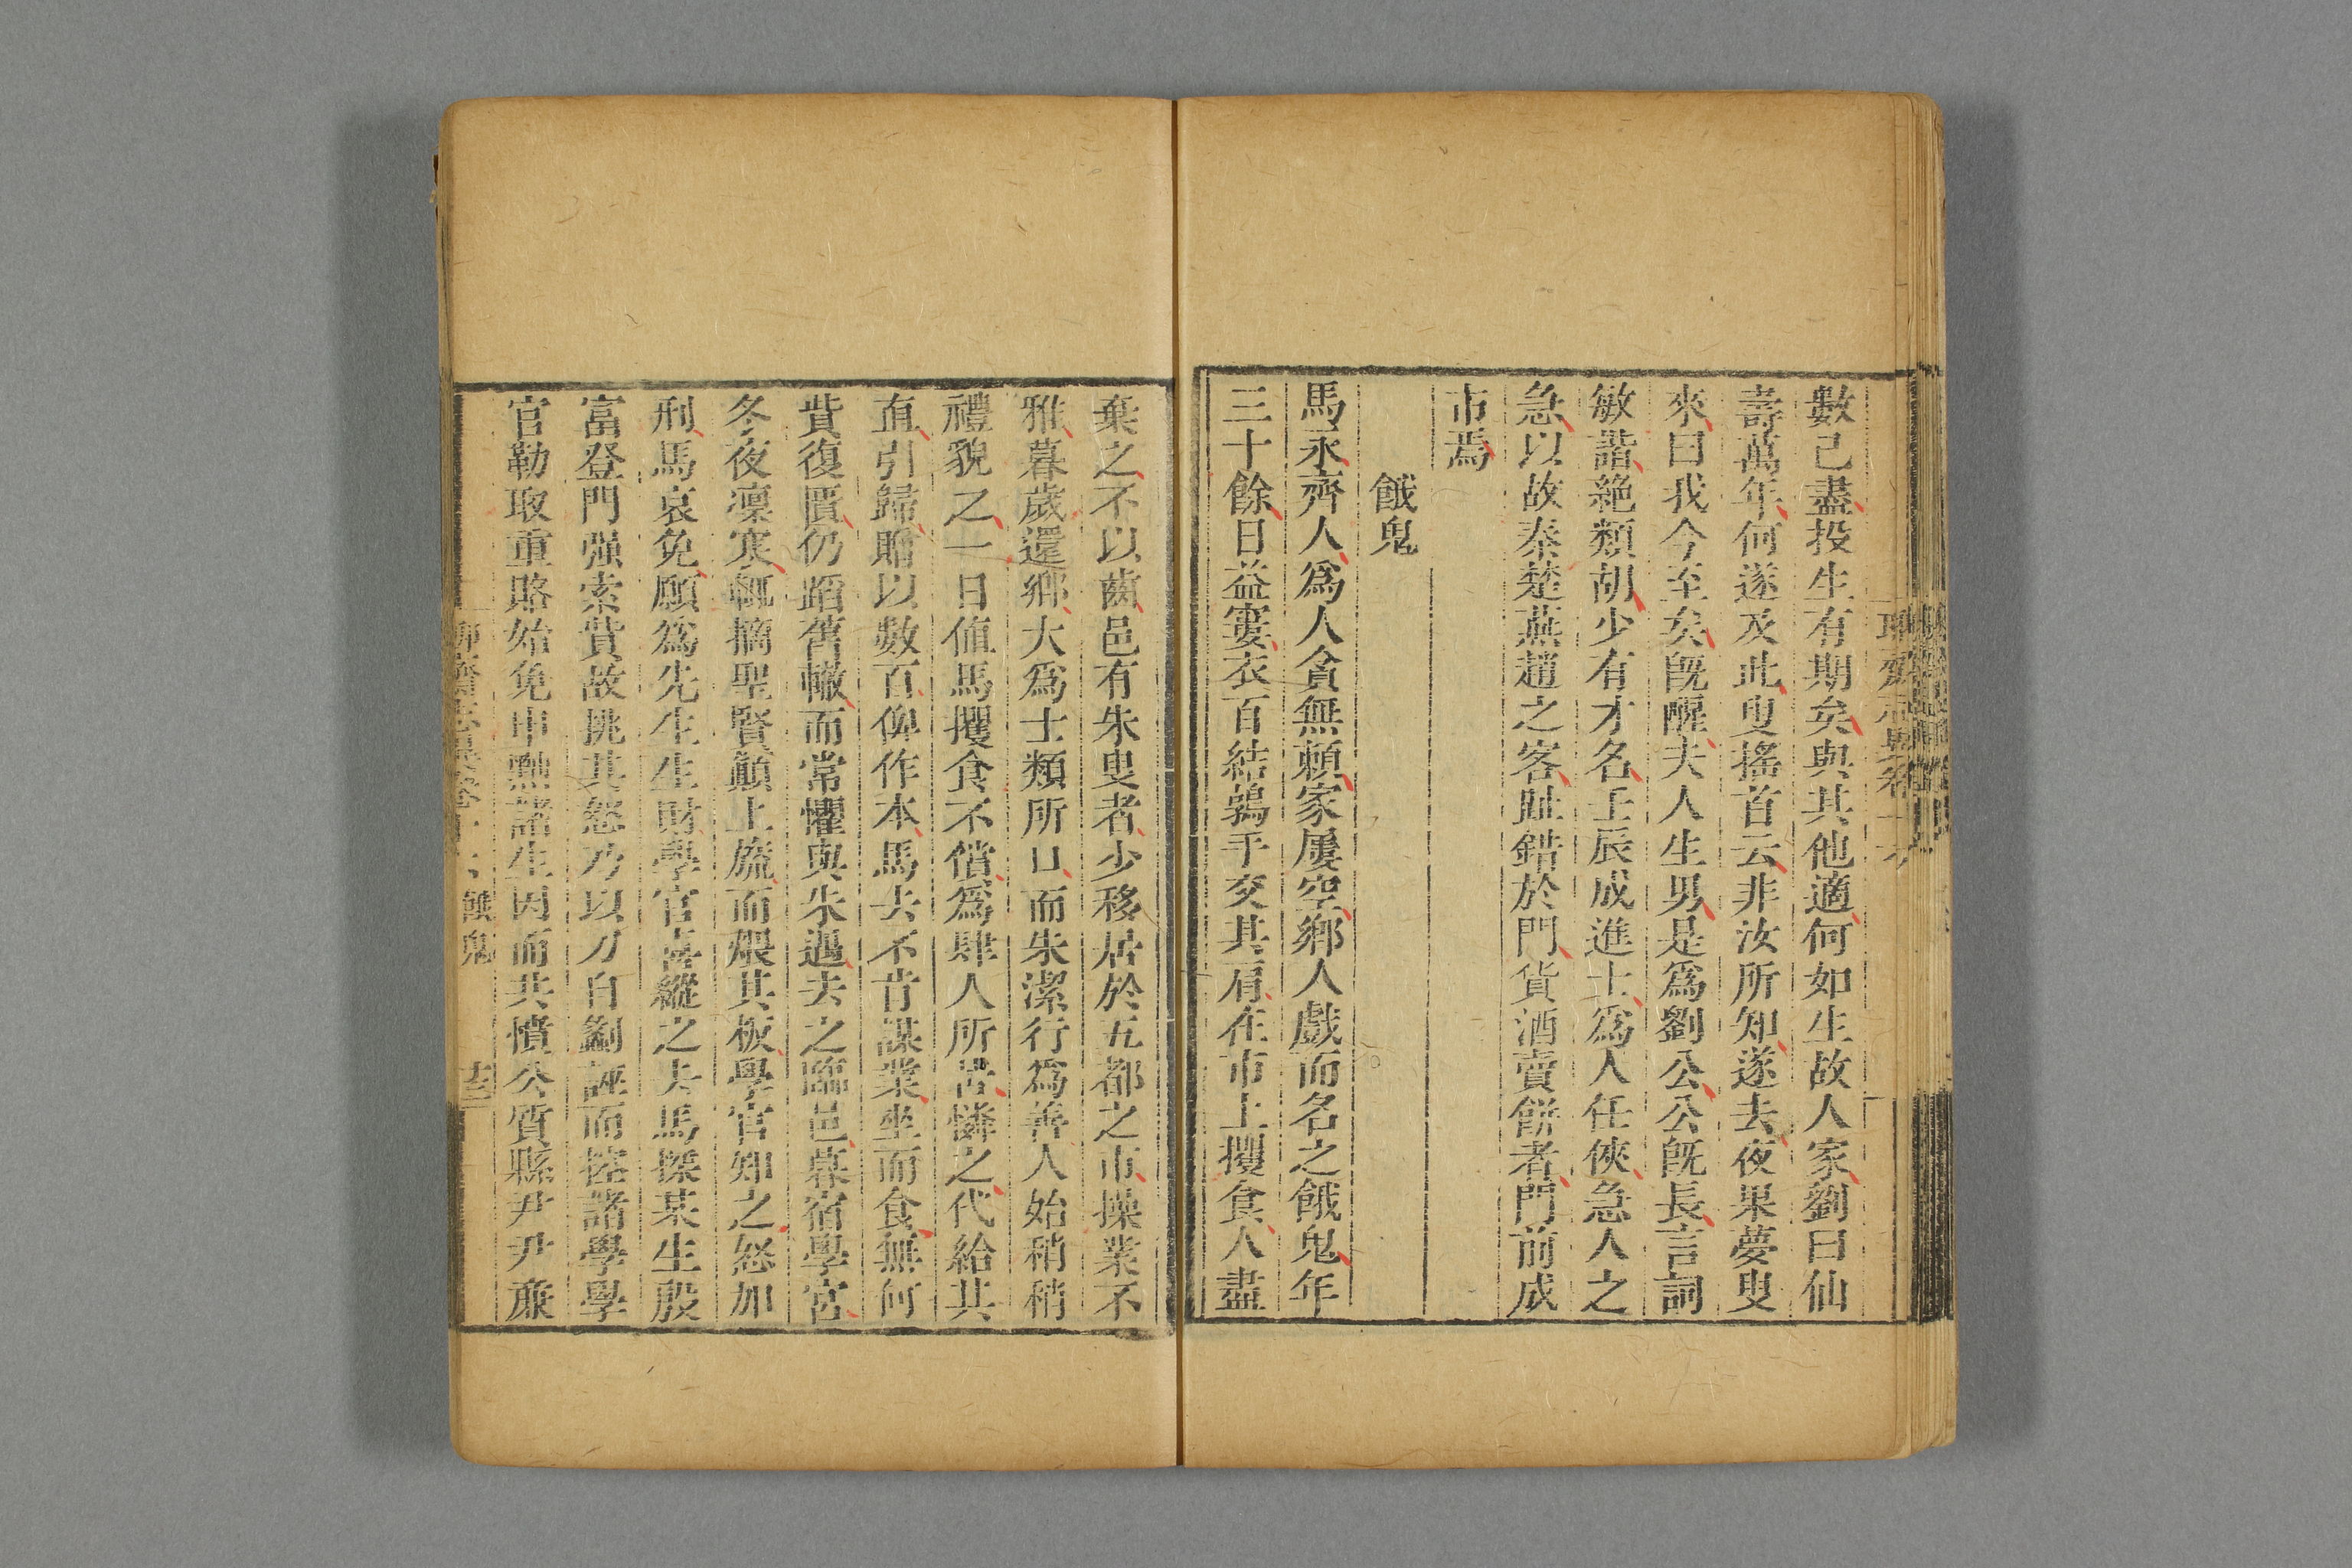 數已盡投生有期矣與其他適何如生故人家劉曰仙
壽萬年何遂及此叟搖首云非汝所知遂去夜果夢叟
來曰我今至矣既醒夫人生男是為劉公公既長言詞
敏諧絕類胡少有才名壬辰成進士為人任俠急人之
急以故秦楚燕趙之客趾錯於門貨酒賣餅者門前成
市焉
餓鬼
馬永齊人為人貪無賴家屢空鄉人戲而名之餓鬼年
三十餘日益窶衣百結鶉手交其肩在市上攫食人盡
棄之不以齒邑有朱叟者少移居於五都之市操業不
雅暮歲還鄉大為士類所口而朱潔行為善人始稍稍
禮貌之一日值馬攫食不償為肆人所苦憐之代給其
直引歸贈以數百俾作本馬去不肯謀業坐而食無何
貲復匱仍蹈舊轍而常懼與朱遇去之臨邑暮宿學宮
冬夜凜寒輒摘聖賢顛上旒而煨其板學官知之怒加
刑馬哀免願為先生生財學官喜縱之去馬探某生殷
富登門强索貲故挑其怒乃以刀自劙誣而控諸學學
官勒取重賂始免申黜諸生因而共憤公質縣尹尹廉
餓鬼